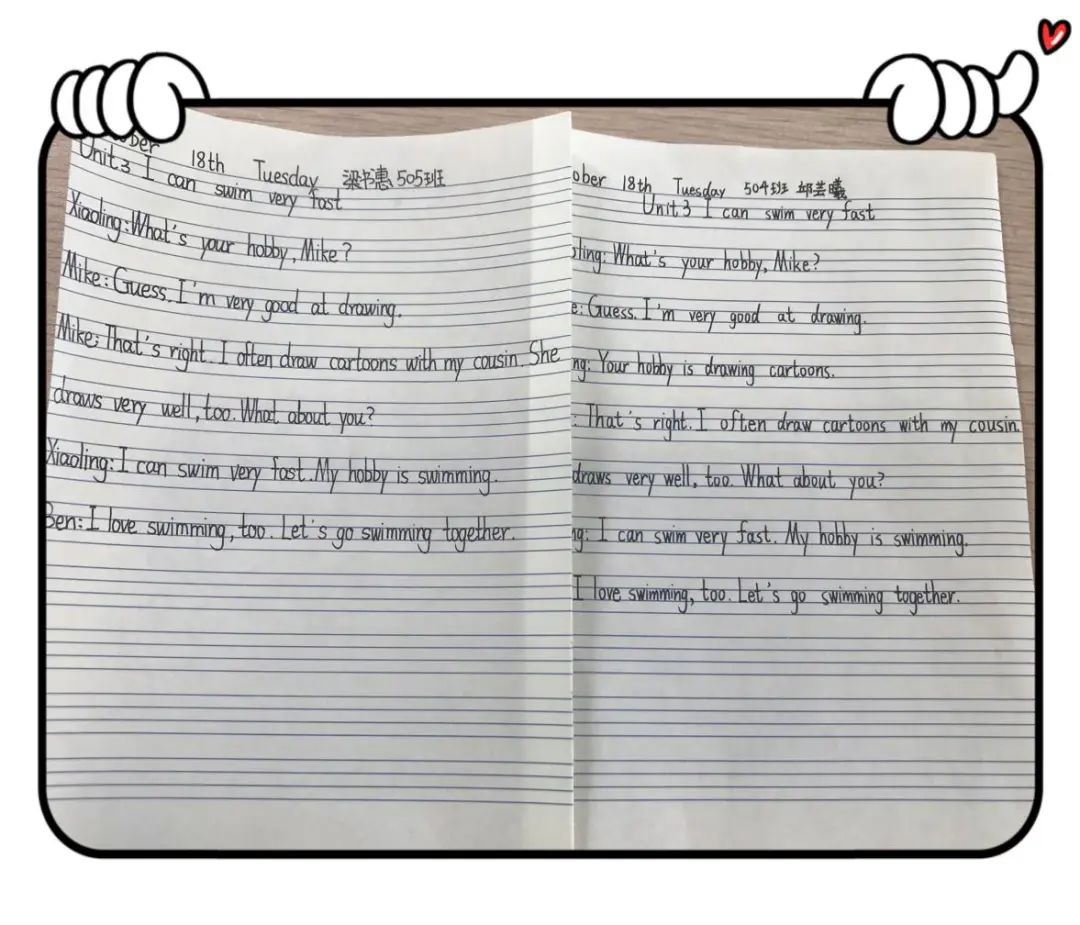 18th Tuesday 梁书惠 505班
Unit 3 I can swim very fast
Xiaoling: What's your hobby, Mike?
Mike: Guess. I'm very good at drawing.
Mike: That's right. I often draw cartoons with my cousin. She
draws very well, too. What about you?
Xiaoling: I can swim very fast. My hobby is swimming.
Ben: I love swimming, too. Let's go swimming together.
ober 18th Tuesday 504班 邱芸曦
Unit.3 I can swim very fast
ling: What's your hobby, Mike?
e: Guess. I'm very good at drawing.
ng: Your hobby is drawing cartoons.
: That's right. I often draw cartoons with my cousin.
draws very well, too. What about you?
ng: I can swim very fast. My hobby is swimming.
I love swimming, too. Let's go swimming together.